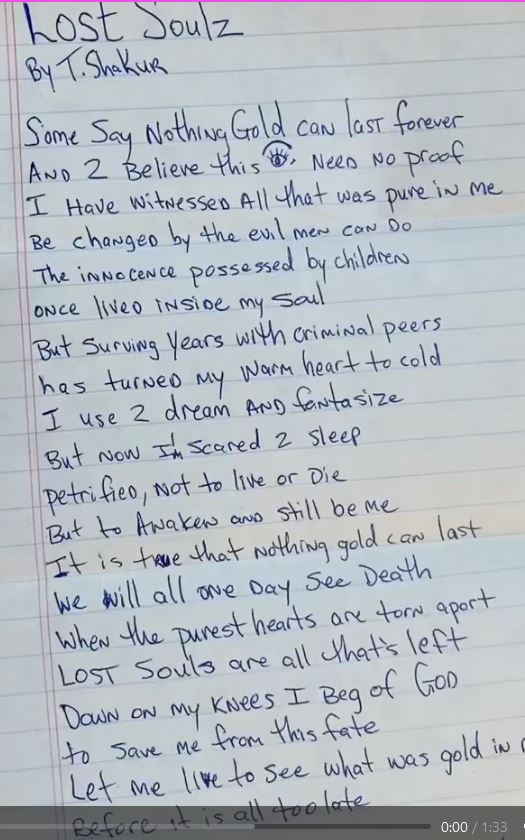 Lost Soulz
By T. Shakur
Some Say Nothing Gold can last forever
AND 2 Believe this 👁, Need No proof
I Have Witnessed All that was pure in me
Be changed by the evil men can Do
The innocence possessed by children
once lived inside my soul
But surving years with criminal peers
has turned my warm heart to cold
I use 2 dream AND fantasize
But now I'm scared 2 sleep
petrified, Not to live or Die
But to Awaken and still be me
It is true that nothing gold can last
We will all one Day See Death
When the purest hearts are torn apart
LOST Souls are all that's left
Down on my Knees I Beg of GOD
to save me from this fate
Let me live to see what was gold in
Before it is all too late
0:00 / 1:33